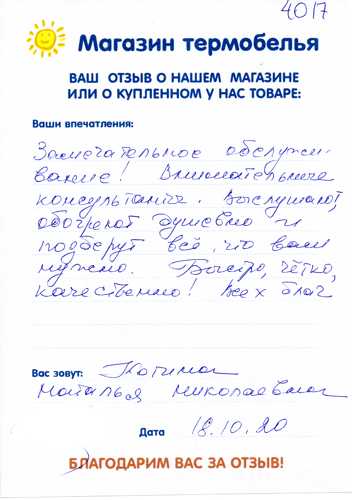 4017
Магазин термобелья
ВАШ ОТЗЫВ О НАШЕМ МАГАЗИНЕ
ИЛИ О КУПЛЕННОМ У НАС ТОВАРЕ:
Ваши впечатления:
Замечательное обслужи-
вание! Внимательные
консультанты. Выслушают,
обогреют душевно и
подберут всё, что вам
нужно. Быстро, чётко,
качественно! Всех благ
Вас зовут:
Наталья Николаевна
Дата 18.10.20
БЛАГОДАРИМ ВАС ЗА ОТЗЫВ!